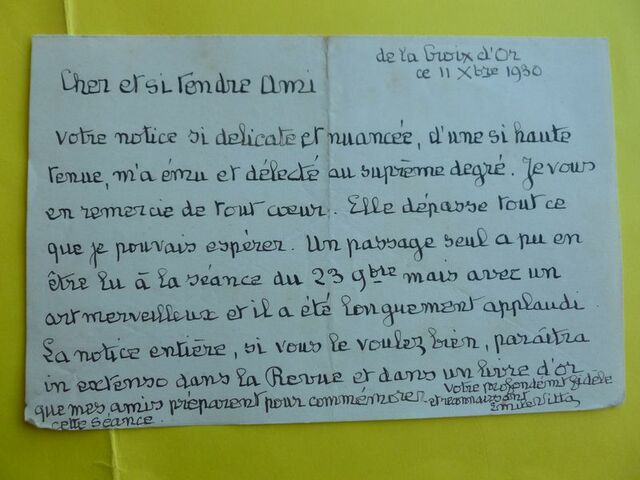 de la Croix d'Or
ce 11 Xbre 1930
Cher et si tendre Ami
Votre notice si delicate et nuancée, d'une si haute
tenue, m'a ému et délecté au suprème degré. Je vous
en remercie de tout cœur. Elle dépasse tout ce
que je pouvais espérer. Un passage seul a pu en
être lu à la séance du 23 9bre mais avec un
art merveilleux et il a été longuement applaudi.
La notice entière, si vous le voulez bien, paraîtra
in extenso dans la Revue et dans un livre d'or
que mes amis préparent pour commémorer
cette séance.
Votre profondémt fidèle
et reconnaissant
Emile Vitta